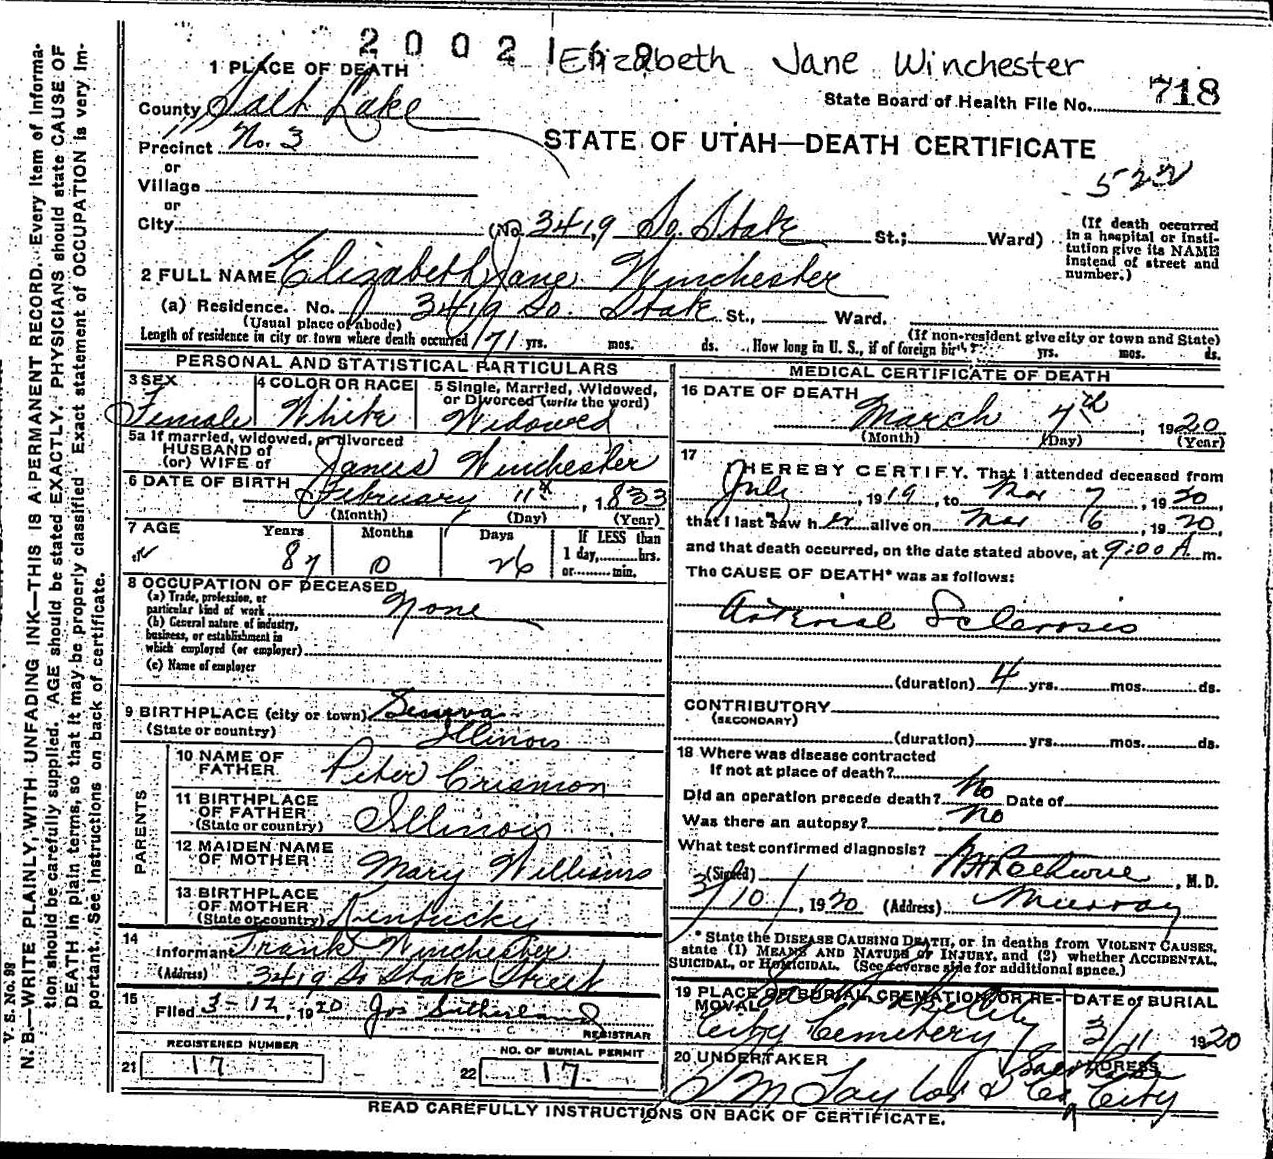 2 0 0 2 1 6 8
Elizabeth Jane Winchester
718
State Board of Health File No.
1 PLACE OF DEATH
County Salt Lake
STATE OF UTAH—DEATH CERTIFICATE
Precinct No. 3
522
or
Village
or
City (No. 3419 So. State St.; Ward)
(If death occurred in a hospital or institution give its NAME instead of street and number.)
2 FULL NAME Elizabeth Jane Winchester
(a) Residence. No. 3419 So. State St., Ward.
(Usual place of abode) (If non-resident give city or town and State)
Length of residence in city or town where death occurred 71 yrs. mos. ds. How long in U. S., if of foreign birth? yrs. mos. ds.
PERSONAL AND STATISTICAL PARTICULARS
3 SEX Female
4 COLOR OR RACE White
5 Single, Married, Widowed, or Divorced (write the word) Widowed
5a If married, widowed, or divorced
HUSBAND of
(or) WIFE of James Winchester
6 DATE OF BIRTH February 11th, 1833
(Month) (Day) (Year)
7 AGE Years 87 Months 0 Days 26 If LESS than 1 day, hrs. or min.
8 OCCUPATION OF DECEASED
(a) Trade, profession, or particular kind of work None
(b) General nature of industry, business, or establishment in which employed (or employer)
(c) Name of employer
9 BIRTHPLACE (city or town) Geneva
(State or country) Illinois
PARENTS
10 NAME OF FATHER Peter Crismon
11 BIRTHPLACE OF FATHER (State or country) Illinois
12 MAIDEN NAME OF MOTHER Mary Williams
13 BIRTHPLACE OF MOTHER (State or country) Kentucky
14 Informant Frank Winchester
(Address) 3419 So State Street
15 Filed 3-12, 1920 Jos Sutherland
REGISTRAR
REGISTERED NUMBER
21 17
NO. OF BURIAL PERMIT
22 17
MEDICAL CERTIFICATE OF DEATH
16 DATE OF DEATH
March 7th, 1920
(Month) (Day) (Year)
17 I HEREBY CERTIFY, That I attended deceased from
July, 1919, to Mar 7, 1920,
that I last saw her alive on Mar 6, 1920,
and that death occurred, on the date stated above, at 9:00 A m.
The CAUSE OF DEATH* was as follows:
Arterial Sclerosis
(duration) 4 yrs. mos. ds.
CONTRIBUTORY
(SECONDARY)
(duration) yrs. mos. ds.
18 Where was disease contracted
If not at place of death?
Did an operation precede death? No Date of
Was there an autopsy? No
What test confirmed diagnosis?
(Signed) , M.D.
3/10/, 1920 (Address) Murray
* State the DISEASE CAUSING DEATH, or in deaths from VIOLENT CAUSES, state (1) MEANS AND NATURE OF INJURY, and (2) whether ACCIDENTAL, SUICIDAL, or HOMICIDAL. (See reverse side for additional space.)
19 PLACE OF BURIAL CREMATION OR REMOVAL Salt Lake City
City Cemetery
DATE of BURIAL
3/11 1920
20 UNDERTAKER
S M Taylor & Co
ADDRESS
Salt Lake City
READ CAREFULLY INSTRUCTIONS ON BACK OF CERTIFICATE.
V. S. No. 98
N. B.—WRITE PLAINLY, WITH UNFADING INK—THIS IS A PERMANENT RECORD. Every item of information should be carefully supplied. AGE should be stated EXACTLY. PHYSICIANS should state CAUSE OF DEATH in plain terms, so that it may be properly classified. Exact statement of OCCUPATION is very important. See instructions on back of certificate.